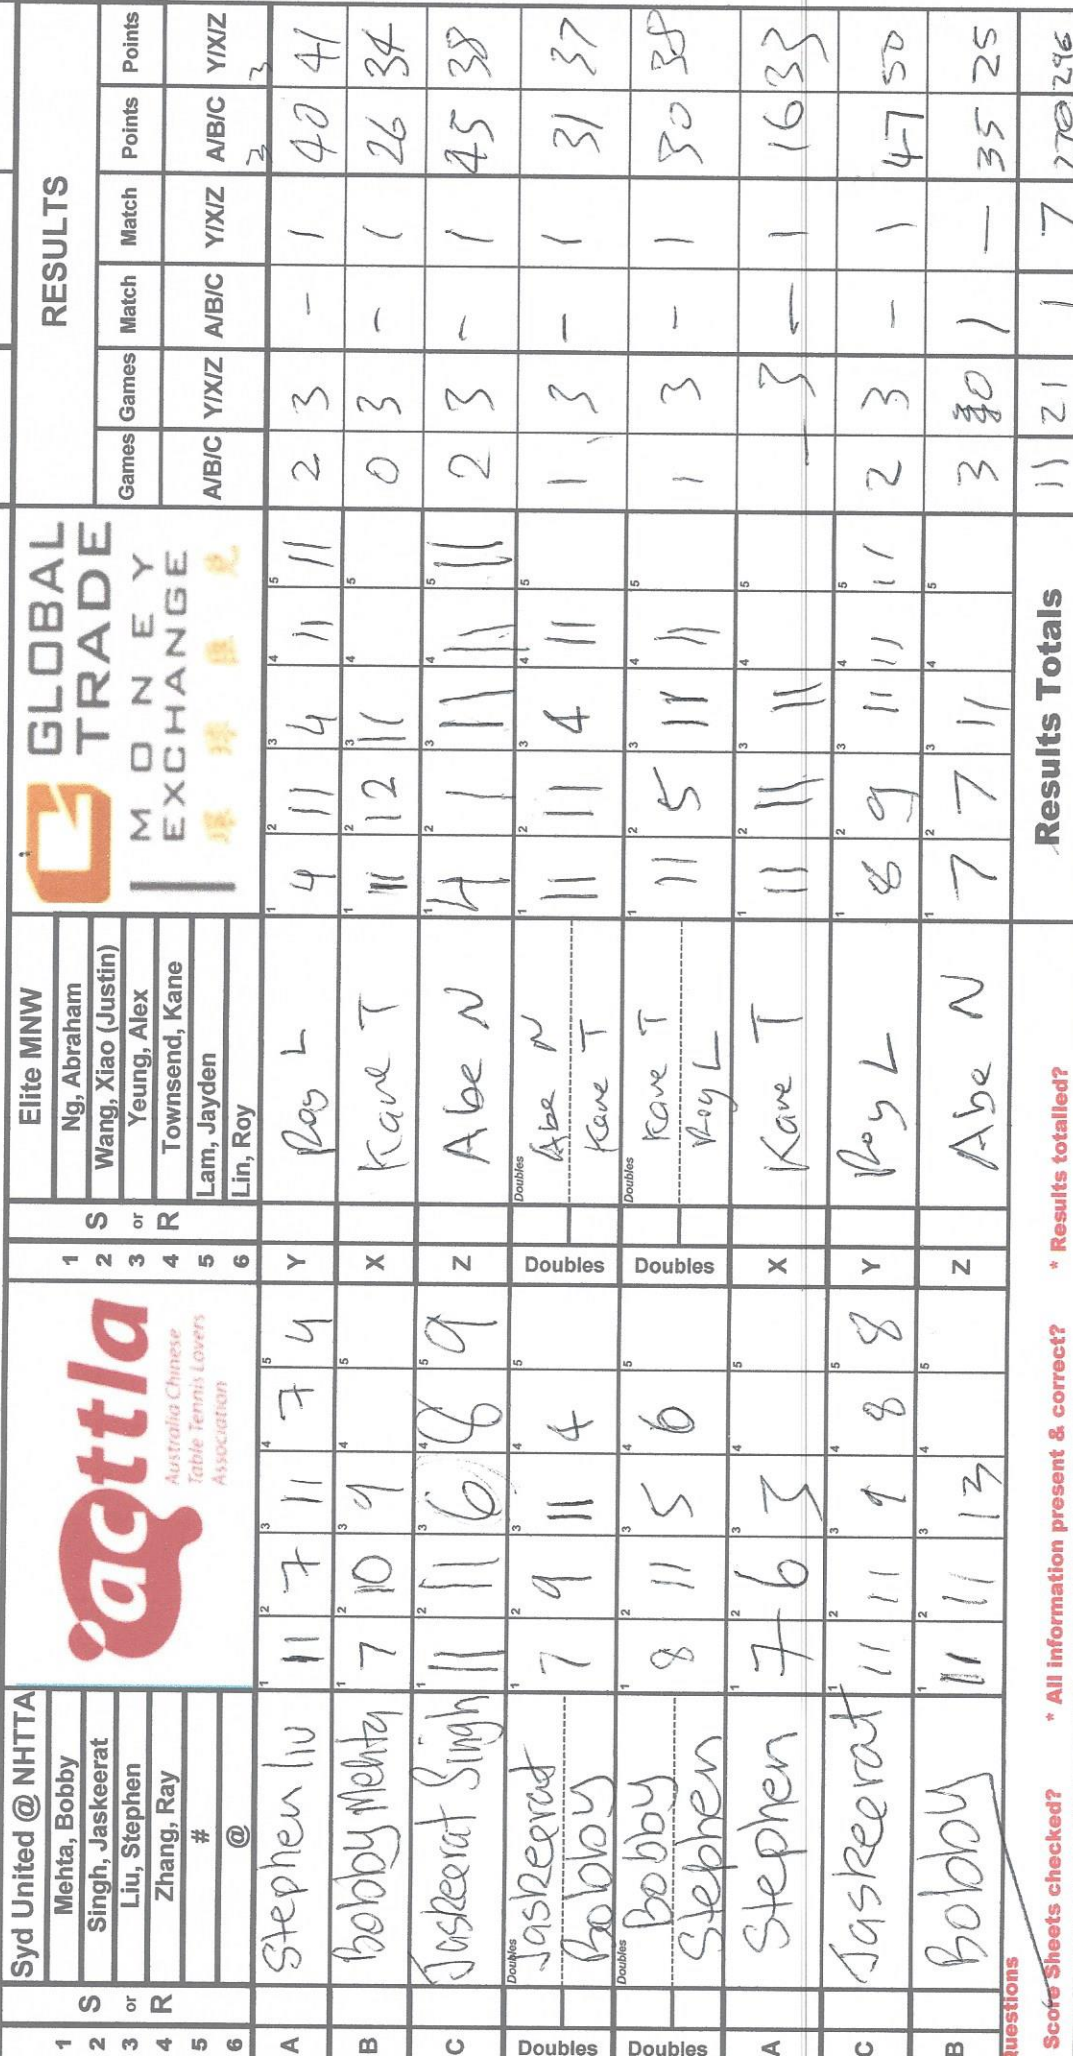 Syd United @ NHTTA
1 Mehta, Bobby
2 Singh, Jaskeerat
3 Liu, Stephen
4 Zhang, Ray
5 #
6 @
S or R
acttla
Australia Chinese
Table Tennis Lovers
Association
1 2 3 4 5 6
S or R
Elite MNW
Ng, Abraham
Wang, Xiao (Justin)
Yeung, Alex
Townsend, Kane
Lam, Jayden
Lin, Roy
GLOBAL
TRADE
MONEY
EXCHANGE
RESULTS
Games Games Match Match Points Points
A/B/C Y/X/Z A/B/C Y/X/Z A/B/C Y/X/Z
A Stephen liu 11 7 11 7 4 Y Roy L 4 11 4 11 11 2 3 - 1 40 41
B Bobby Mehta 7 10 9 X Kane T 11 12 11 0 3 - 1 26 34
C Jaskeerat Singh 11 11 6 8 9 Z Abe N 4 1 11 11 11 2 3 - 1 45 38
Doubles Jaskeerat Bobby 7 9 11 4 Doubles Abe N Kane T 11 11 4 11 1 3 - 1 31 37
Doubles Bobby Stephen 8 11 5 6 Doubles Kane T Roy L 11 5 11 11 1 3 - 1 30 38
A Stephen 7 6 3 X Kane T 11 11 11 - 3 - 1 16 33
C Jaskeerat 11 11 9 8 8 Y Roy L 8 9 11 11 11 2 3 - 1 47 50
B Bobby 11 11 13 Z Abe N 7 7 11 3 0 1 - 35 25
Results Totals 11 21 1 7 270 296
uestions
Score Sheets checked? * All information present & correct? * Results totalled?